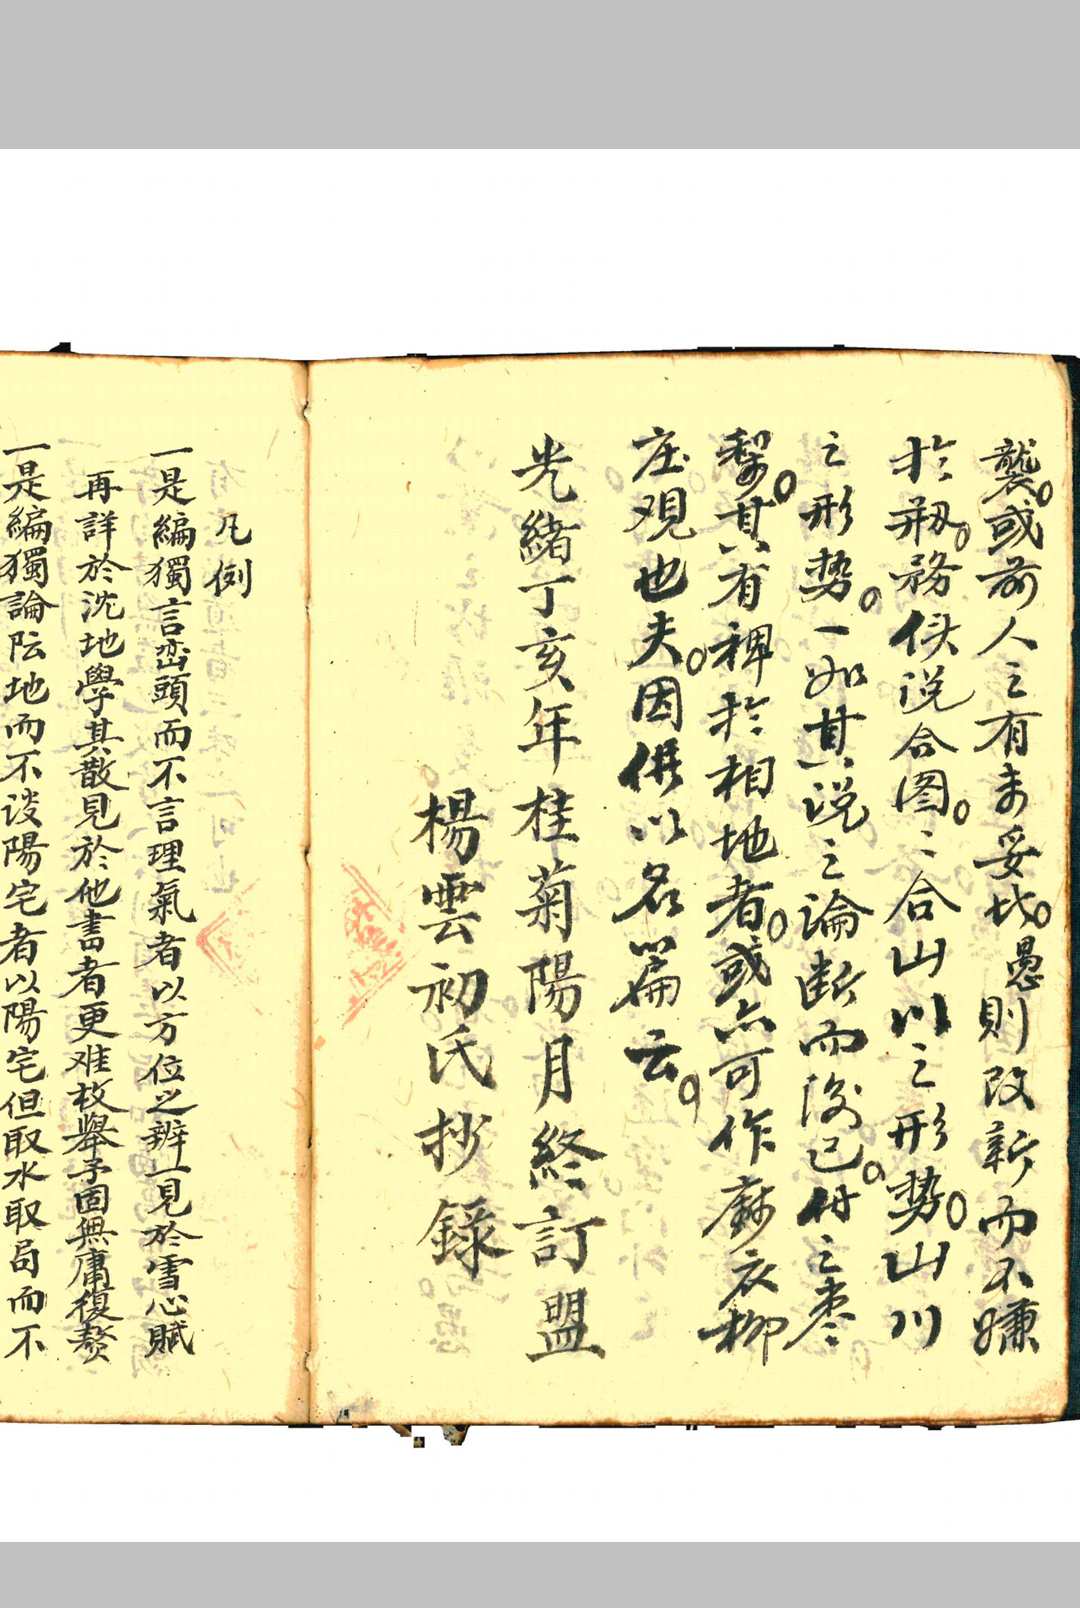 襲或前人之有未妥哉愚則改新而不嫌
於剏務使說合图二合山以之形勢山川
之形勢一如其說之論断而後已付之棗
梨其有裨於相地者或亦可作麻衣柳
庄观也夫因俱以名篇云
光緒丁亥年桂菊陽月終訂盟
楊雲初氏抄錄
凡例
一是編獨言巒頭而不言理氣者以方位之辨一見於雪心賦
再詳於沈地學其散見於他書者更难枚舉予固無庸復贅
一是編獨論阮地而不談陽宅者以陽宅但取水取局而不